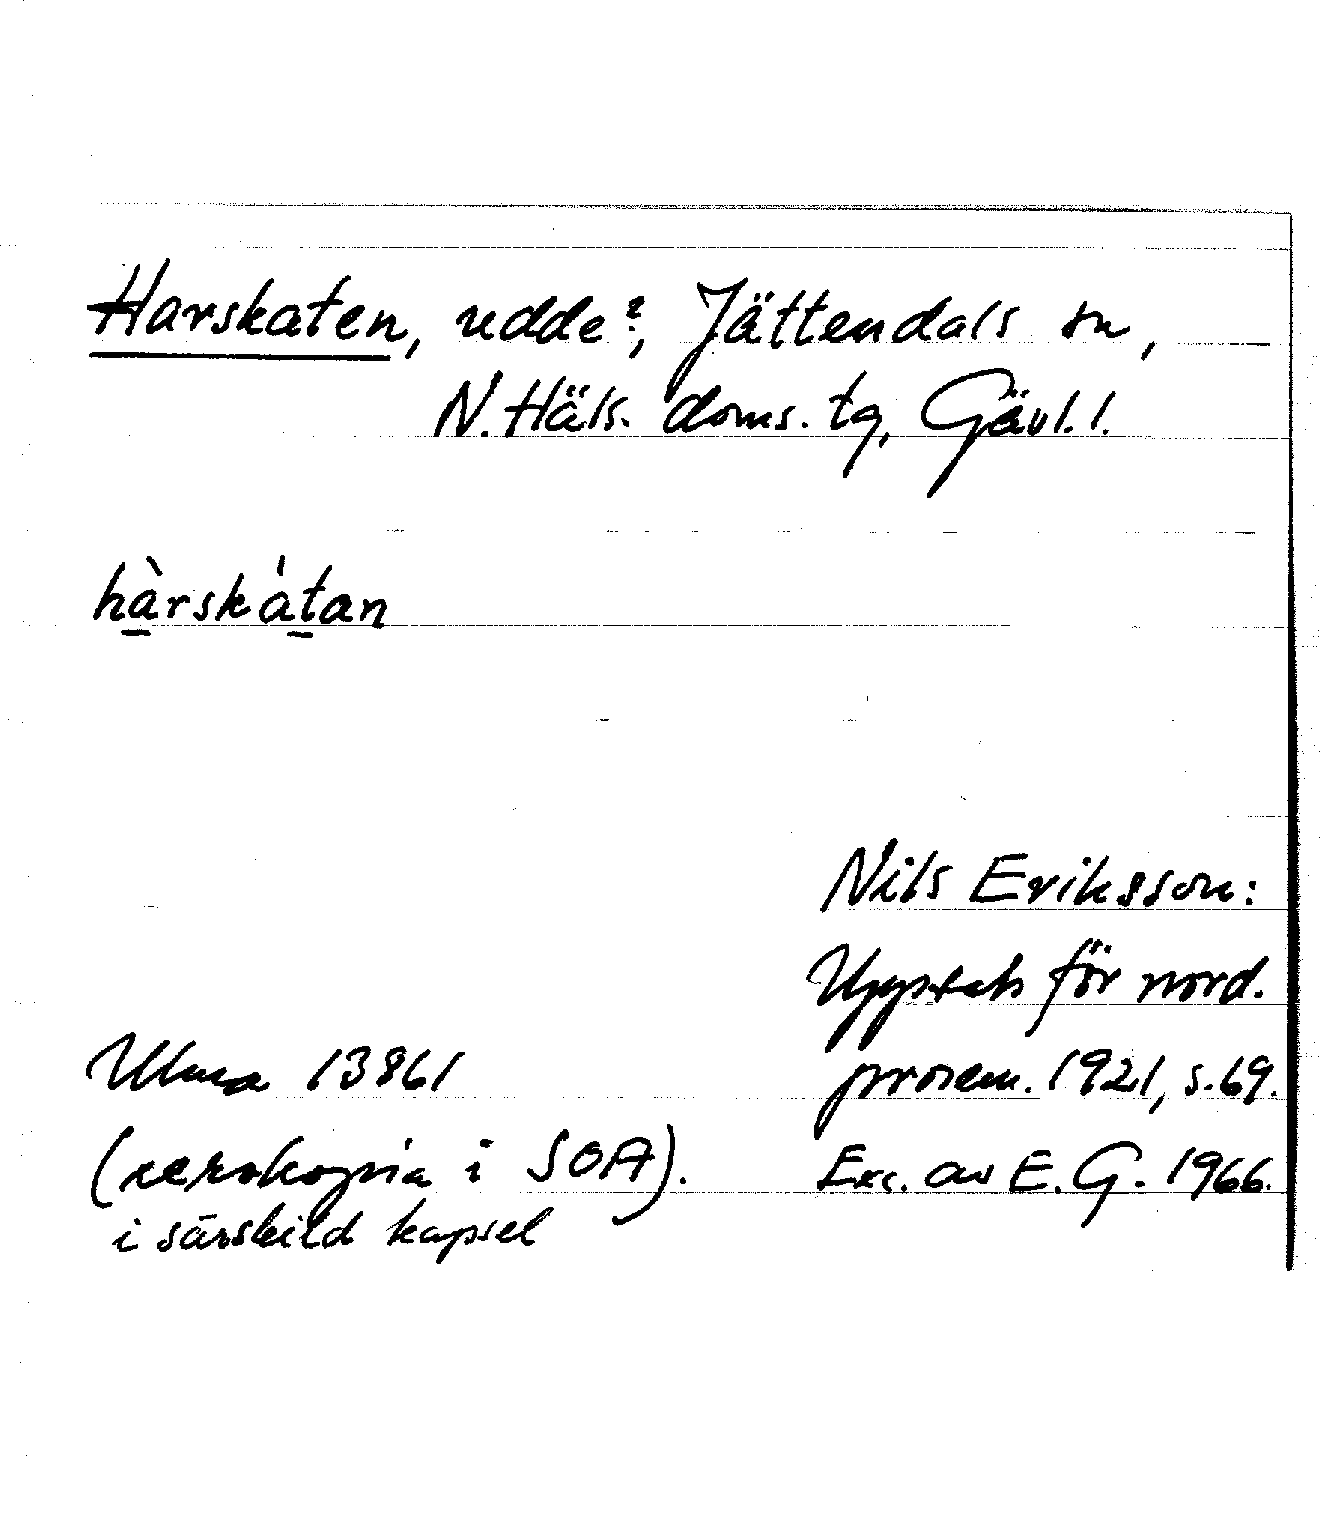 Harskaten, udde?, Jättendals sn,
N. Häls. doms. tg, Gävl. l.
hàrskátan
Nils Eriksson:
Uppsats för nord.
Ulma 13861 prosem. 1921, s. 69.
(xerokopia i SOA). Exc. av E. G. 1966.
i särskild kapsel